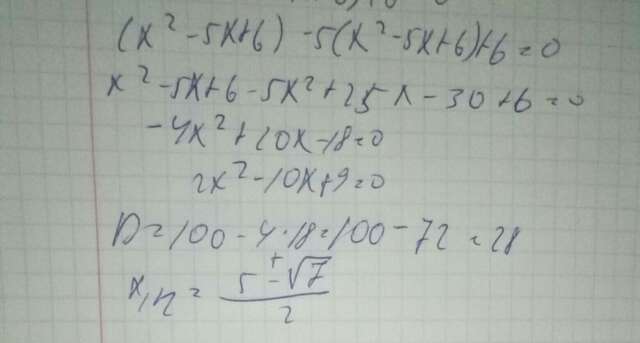 (x² -5x+6) -5(x²-5x+6)+6=0
x²-5x+6-5x²+25x-30+6=0
-4x²+20x-18=0
2x²-10x+9=0
D=100-4·18=100-72=28
x₁,₂= (5±√7)/2